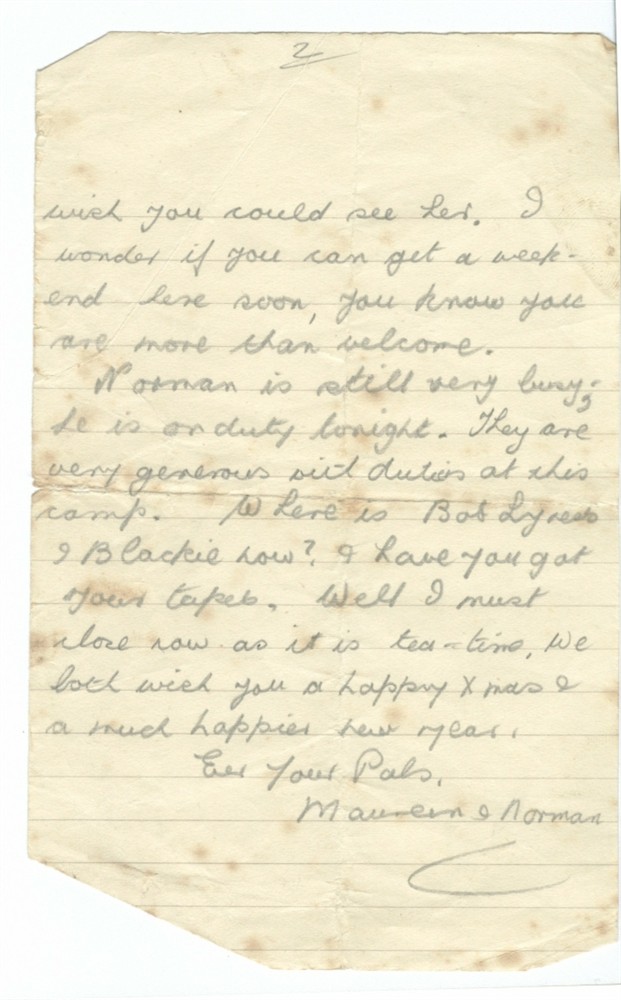 2
wish you could see her. I
wonder if you can get a week-
end here soon, you know you
are more than welcome.
Norman is still very busy,
he is on duty tonight. They are
very generous with duties at this
camp. Where is Bob
& Blackie now? & have you got
your tapes. Well I must
close now as it is tea-time, We
both wish you a happy Xmas &
a much happier new year.
Ever Your Pals.
Maureen & Norman